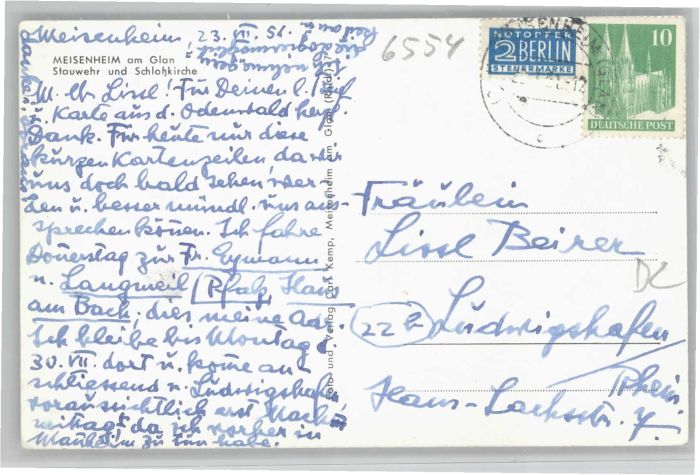 Meisenheim, 23. VII. 51.
MEISENHEIM am Glan
Stauwehr und Schloßkirche
M. lb. Lissl! Für Deinen l. Brief
u. Karte aus d. Odenwald herzl.
Dank. Für heute nur diese
kurzen Kartenzeilen, da wir
uns doch bald sehen wer-
den u. besser mündl. uns aus-
sprechen können. Ich fahre
Donerstag zur Fr. Eymann
n. Langmeil/Pfalz, Haus
am Bach, dies meine Adr.
Ich bleibe bis Montag d.
30. VII. dort u. kome an
schliessend n. Ludwigshafen
voraussichtlich erst Nach-
mittags da ich vorher in
Manheim zu tun habe.
Foto und Verlag Carl Kemp, Meisenheim am Glan
6554
NOTOPFER
2 BERLIN
STEUERMARKE
10
DEUTSCHE POST
MEISENHEIM
Fräulein
Lissl Beirer
DC
22b Ludwigshafen
/Rhein
Hans-Sachsstr. 7.